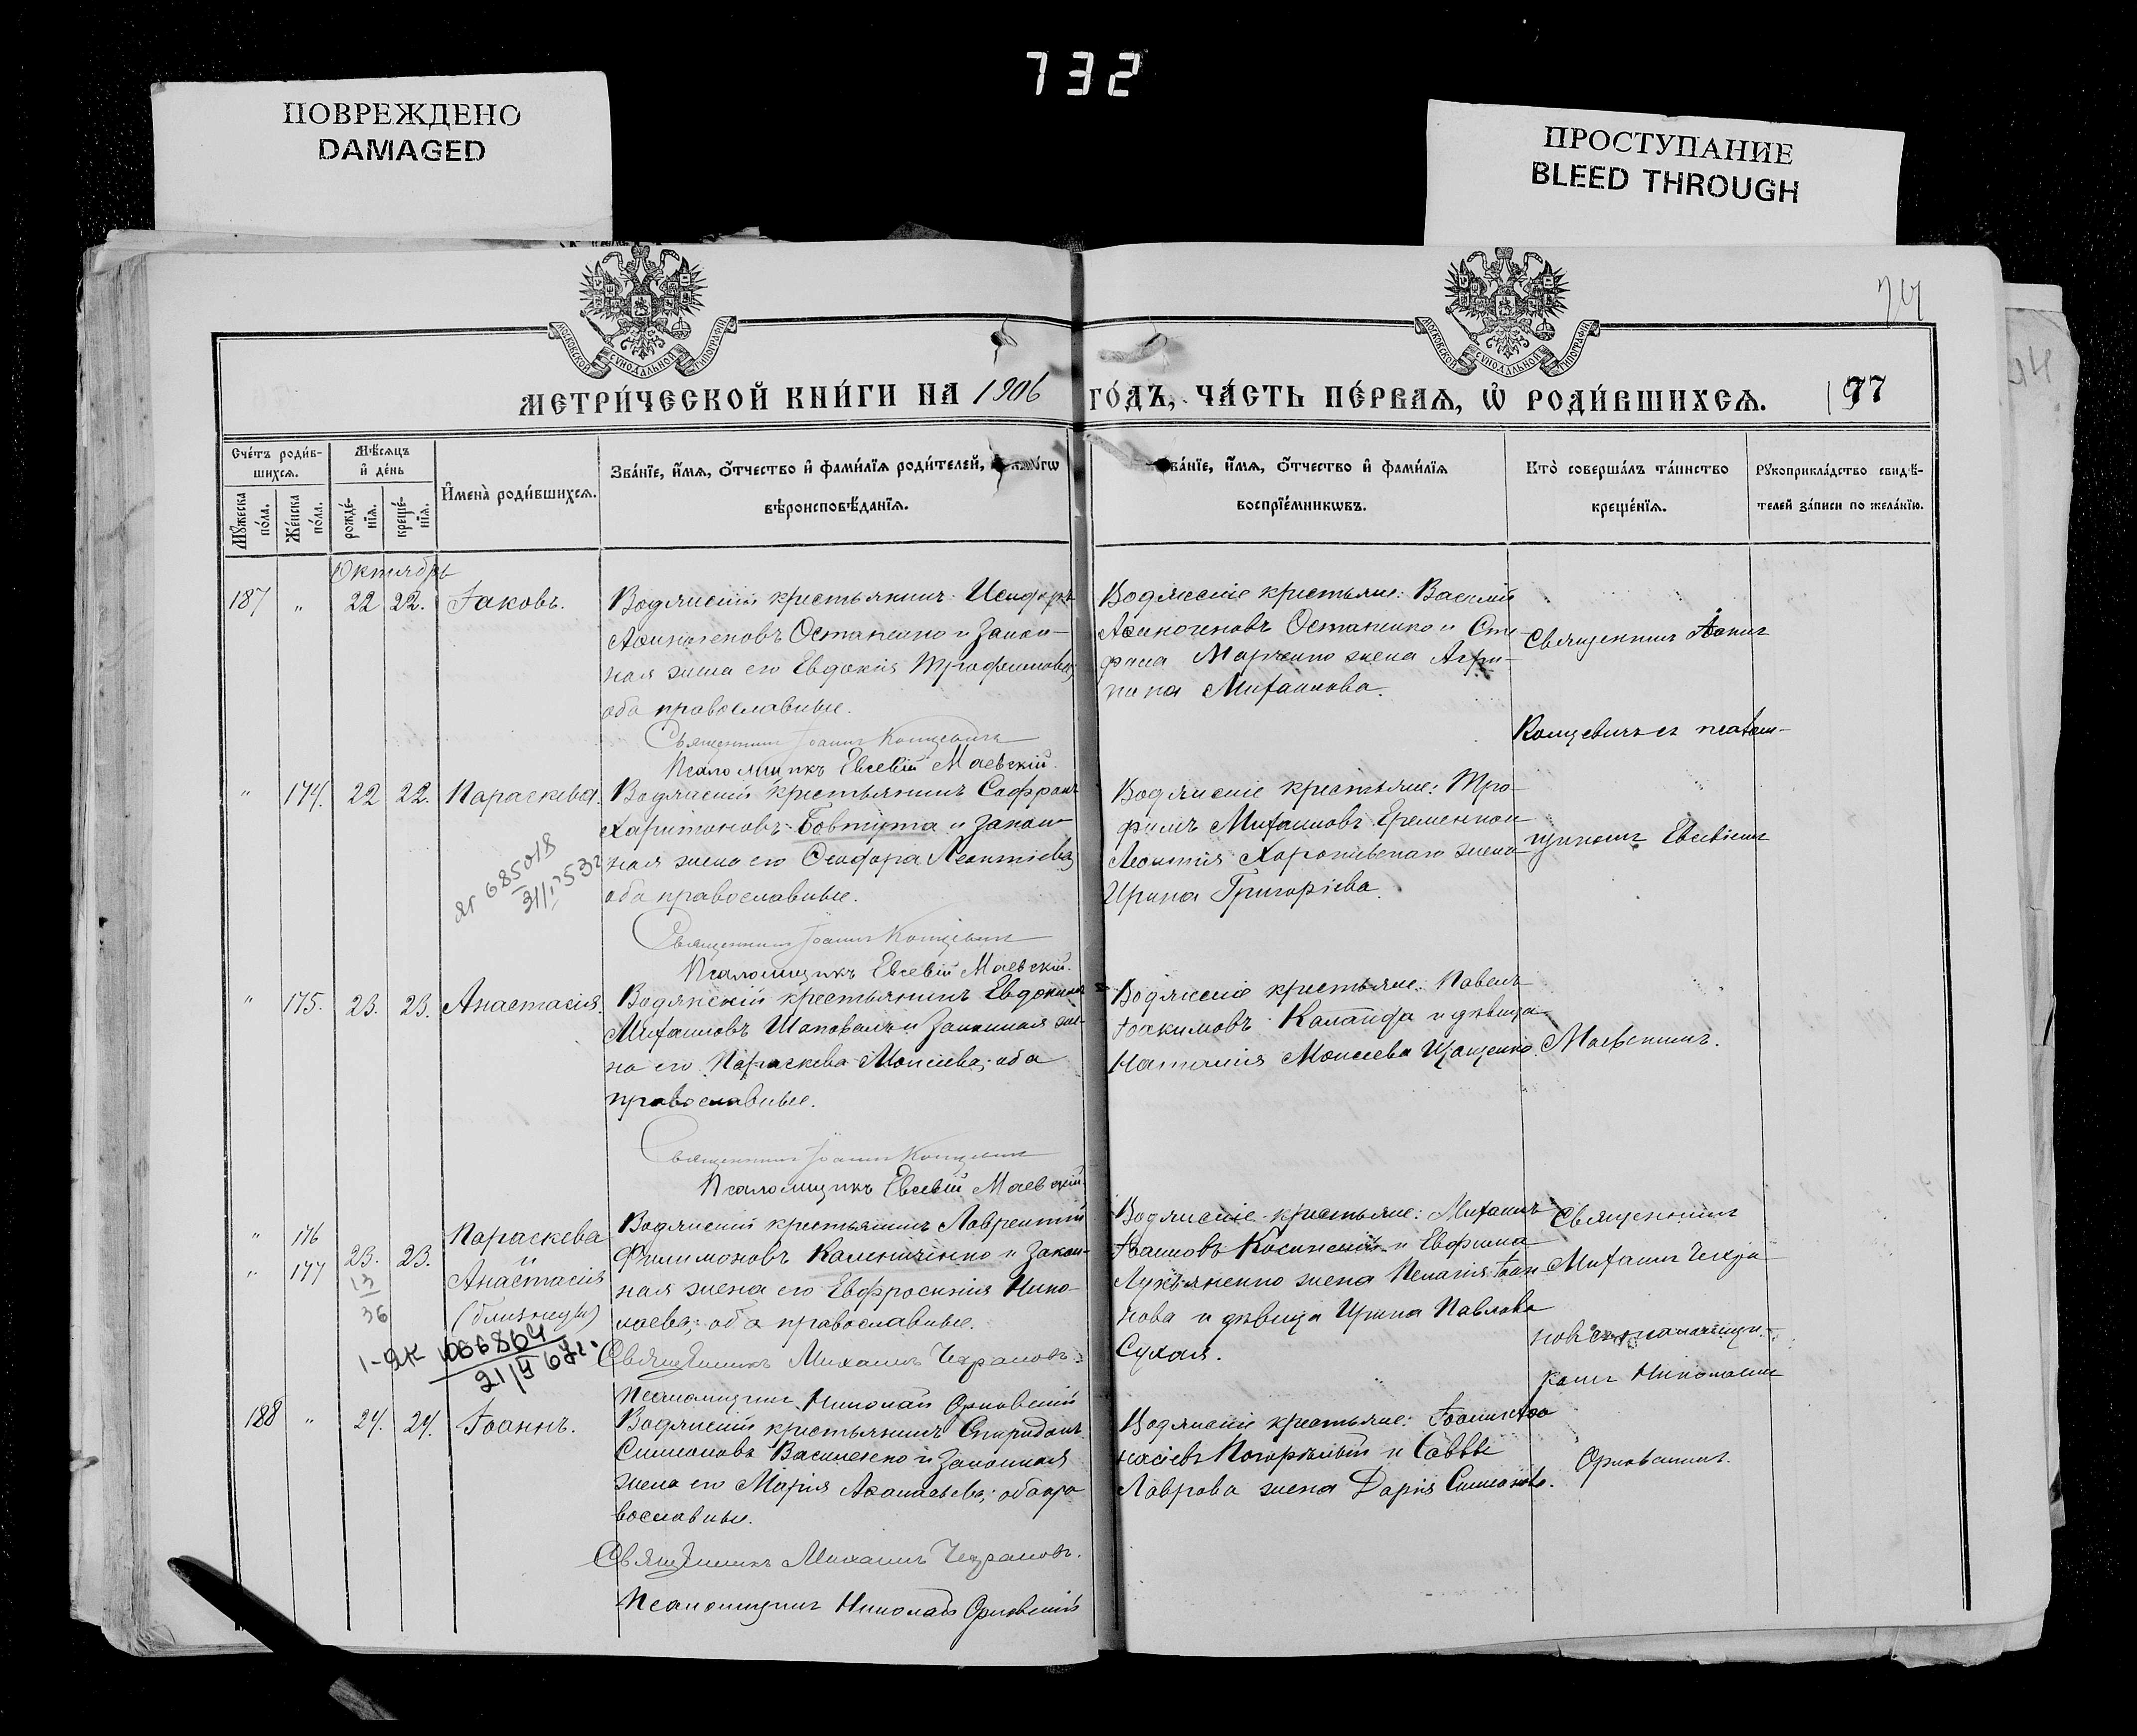 732
ПОВРЕЖДЕНО
DAMAGED
ПРОСТУПАНИЕ
BLEED THROUGH
МОСКОВСКОЙ СУНОДАЛЬНОЙ ТИПОГРАФІИ
МОСКОВСКОЙ СУНОДАЛЬНОЙ ТИПОГРАФІИ
МЕТРИ́ЧЕСКОЙ КНИ́ГИ НА 1906 ГО́ДЪ, ЧА́СТЬ ПЕ́РВАѦ, Ѡ҆ РОДИ́ВШИХСѦ.
177
Сче́тъ роди́в-
шихсѧ.
Мѣ́сѧцъ
и҆ де́нь
Мꙋ́жеска
по́ла.
Же́нска
по́ла.
рожде́-
нїѧ.
креще́-
нїѧ.
И҆мена̀ роди́вшихсѧ.
Зва́нїе, и҆́мѧ, ѻ҆́тчество и҆ фами́лїѧ роди́телей,
вѣроисповѣ́данїѧ.
ва́нїе, и҆́мѧ, ѻ҆́тчество и҆ фами́лїѧ
воспрїе́мникѡвъ.
Кто̀ соверша́лъ та́инство
креще́нїѧ.
Рꙋкоприкла́дство свидѣ́-
телей за́писи по жела́нїю.
Октябрь
187 " 22 22. Іаковъ.
Водянскій крестьянинъ Исидоръ
Аѳиногеновъ Остапенко и закон-
ная жена его Евдокія Трофимова,
оба православные.
Священникъ Іоаннъ Концевичъ
Псаломщикъ Евсевій Маевскій.
Водянскіе крестьяне: Василій
Аѳиногеновъ Остапенко и Сте-
фана Марченко жена Агри-
пина Михаилова.
Священникъ Іоаннъ
Концевичъ съ псалом-
" 174. 22 22. Параскева.
Водянскій крестьянинъ Софронъ
Харитоновъ Бовтута и закон-
ная жена его Ѳеодора Леонтіева,
оба православные.
Священникъ Іоаннъ Концевичъ
Псаломщикъ Евсевій Маевскій.
ЯГ 685018
Водянскіе крестьяне: Тро-
фимъ Михаиловъ Еременко и
Леонтія жена
Ирина Григоріева.
щикомъ Евсевіемъ
" 175. 23. 23. Анастасія.
Водянскій крестьянинъ Евдокимъ
Михаиловъ Шаповалъ и законная же-
на его Параскева Моисеева, оба
православные.
Священникъ Іоаннъ Концевичъ
Псаломщикъ Евсевій Маевскій
Водянскіе крестьяне: Павелъ
Іоакимовъ и дѣвица
Наталія Моисеева
Маевскимъ.
" 176
" 177
23. 23.
13
36
Параскева
и
Анастасія
(близнецы)
Водянскій крестьянинъ Лаврентій
Филимоновъ Калениченко и закон-
ная жена его Евфросинія Нико-
лаева, оба православные.
Священникъ Михаилъ Чехрановъ.
Псаломщикъ Николай Орловскій
1-ЯК
21/V 67г.
Водянскіе крестьяне: Михаилъ
Іоанновъ и Евфима
Лукьяненко жена Пелагія Іоан-
нова и дѣвица Ирина Павлова
Сухая.
Священникъ
Михаилъ Чехра-
новъ съ псаломщи-
комъ Николаемъ
188 " 24. 24. Іоаннъ.
Водянскій крестьянинъ Спиридонъ
Симеоновъ Василенко и законная
жена его Марія Аѳанасьева, оба пра-
вославные.
Священникъ Михаилъ Чехрановъ.
Псаломщикъ Николай Орловскій
Водянскіе крестьяне: Іоаннъ Аѳа-
насіевъ Погорѣлый и Саввы
Лаврова жена Дарія Симеонова.
Орловскимъ.